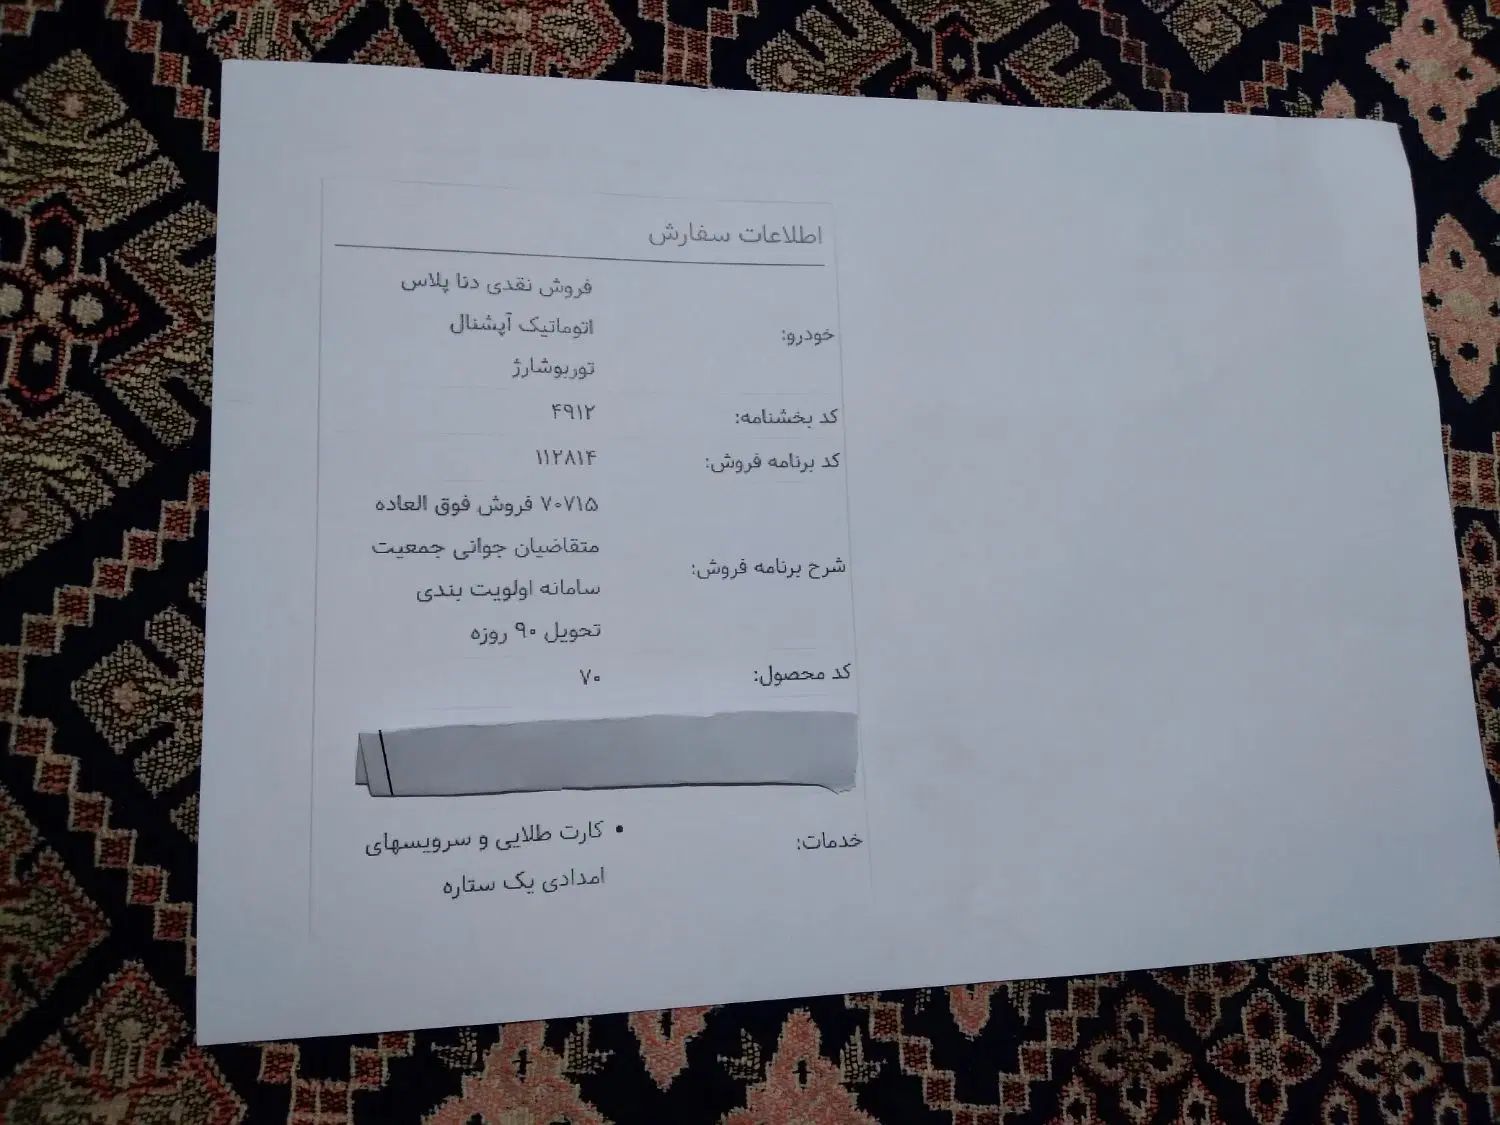 اطلاعات سفارش
خودرو: فروش نقدی دنا پلاس
اتوماتیک آپشنال
توربوشارژ
کد بخشنامه: ۴۹۱۲
کد برنامه فروش: ۱۱۲۸۱۴
شرح برنامه فروش: ۷۰۷۱۵ فروش فوق العاده
متقاضیان جوانی جمعیت
سامانه اولویت بندی
تحویل ۹۰ روزه
کد محصول: ۷۰
خدمات: • کارت طلایی و سرویسهای
امدادی یک ستاره